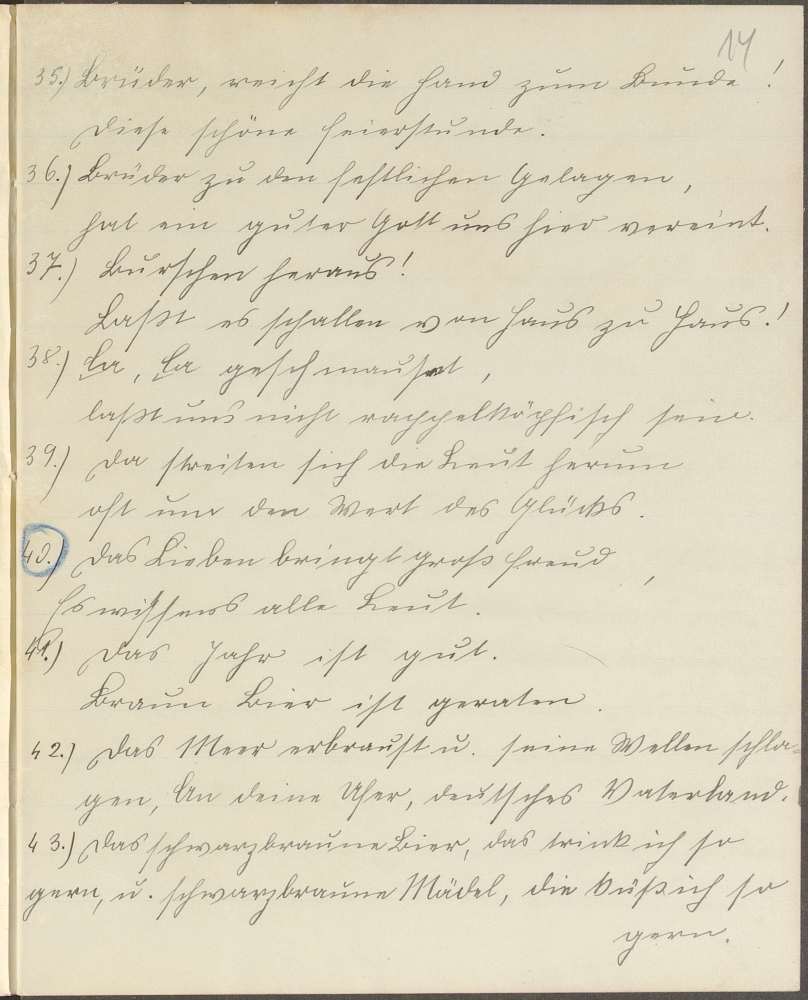 14
35.) Brüder, reicht die Hand zum Bunde!
Diese schöne Feierstunde.
36.) Brüder zu den festlichen Gelagen,
hat ein guter Gott uns hier vereint.
37.) Burschen heraus!
Laßt es schallen von Haus zu Haus!
38.) Ça, Ça geschmauset,
laßt uns nicht rappelköpfisch sein.
39.) Da streiten sich die Leut herum
oft um den Wert des Glücks.
40.) Das Lieben bringt groß Freud,
Es wissens alle Leut.
41.) Das Jahr ist gut.
Braun Bier ist geraten.
42.) Das Meer erbraust u. seine Wellen schla-
gen, An deine Ufer, deutsches Vaterland.
43.) Das schwarzbraune Bier, das trink ich so
gern, u. schwarzbraune Mädel, die küß ich so
gern.